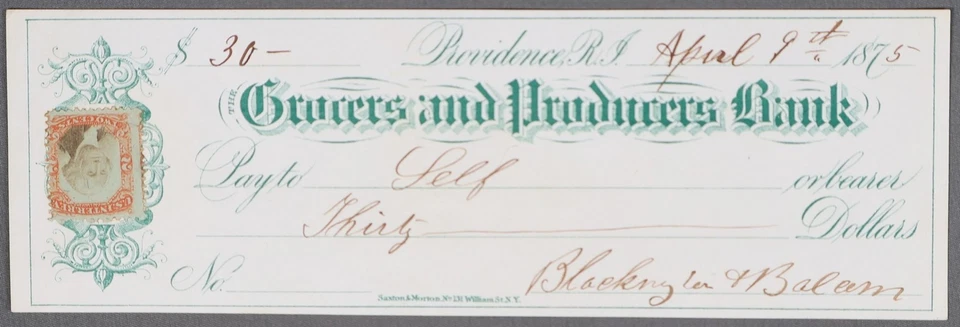 $ 30 — Providence, R.I. April 9th 1875
THE Grocers and Producers Bank
Pay to Self or bearer
Thirty Dollars
No.
Saxton & Morton, No 131 William St. N.Y.
& Balcom